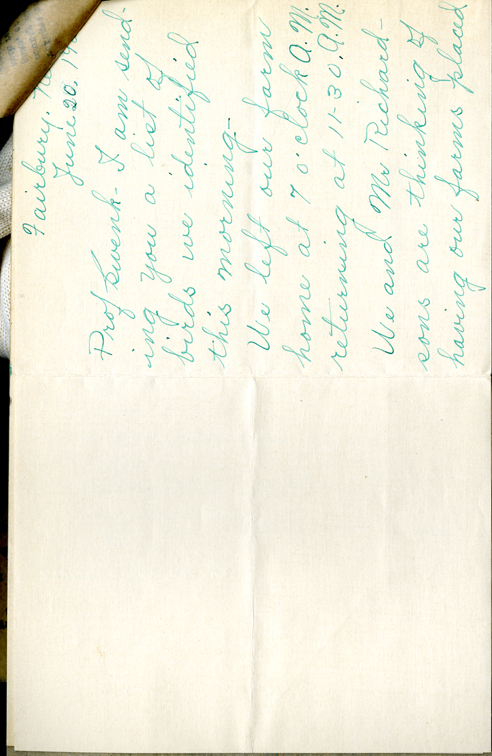 Fairbury,
June 20,
Prof Swenk - I am send-
ing you a list of
birds we identified
this morning -
We left our farm
home at 7 o'clock A.M.
returning at 11:30 A.M.
We and Mr Richard-
sons are thinking of
having our farms placed